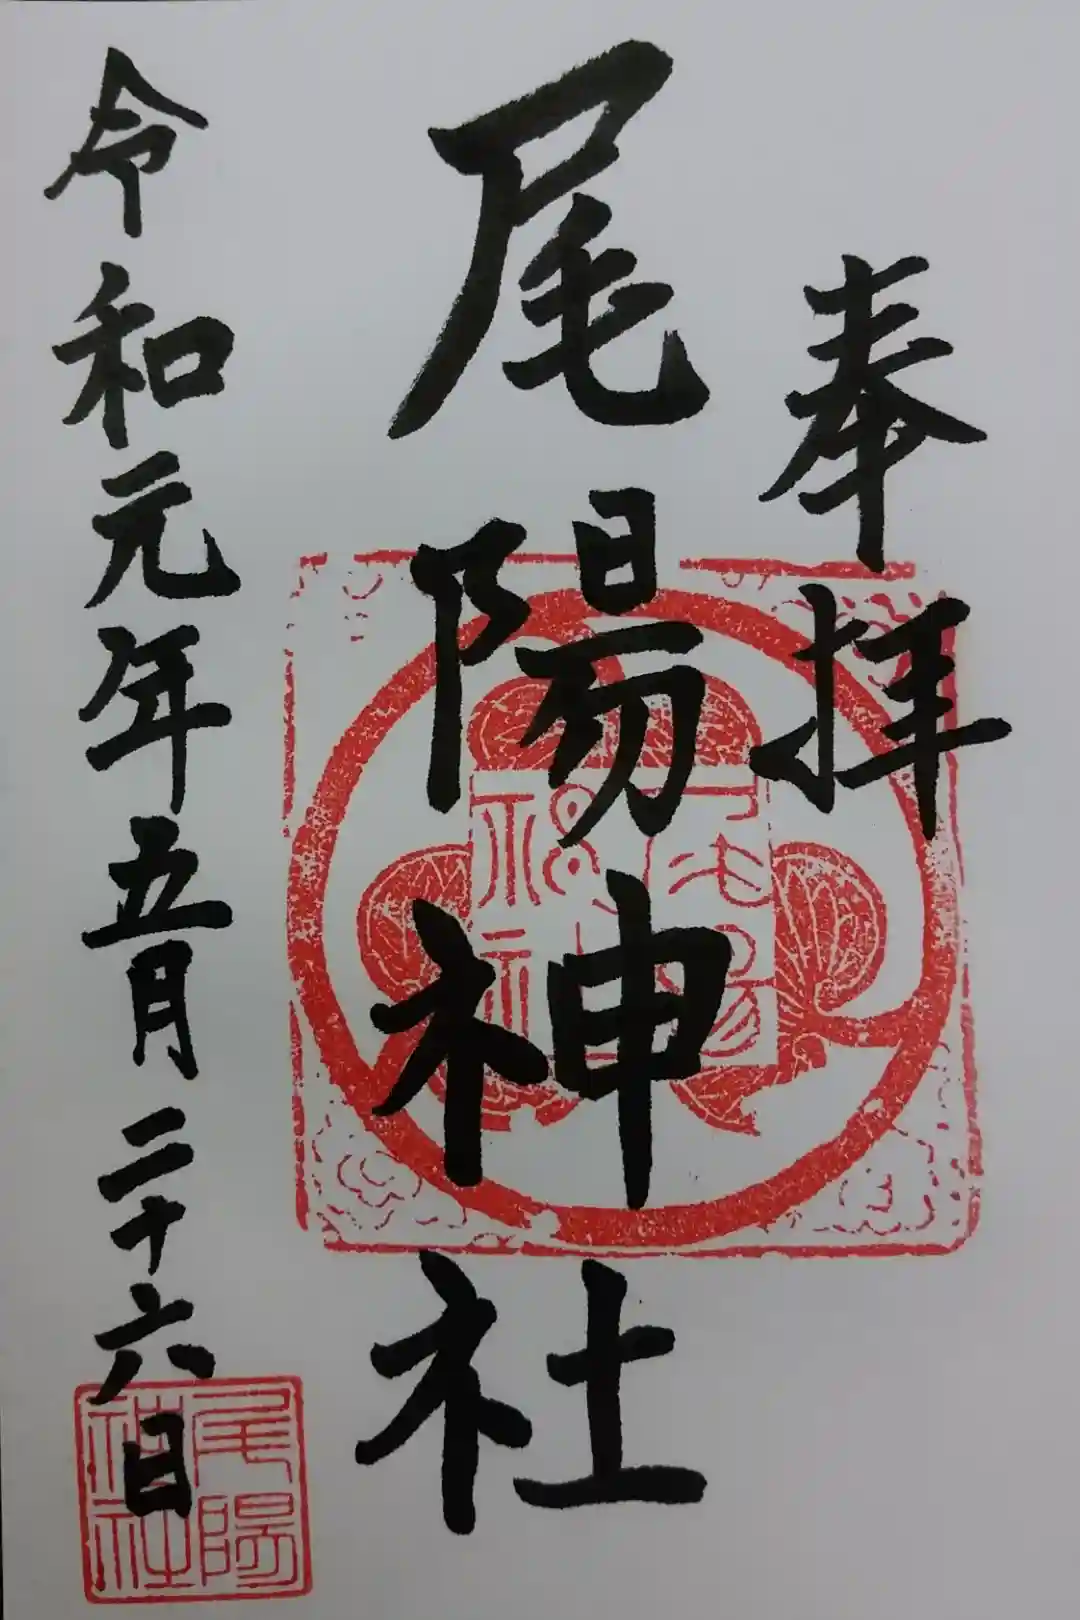 奉拝
尾陽神社
令和元年五月二十六日
尾陽
神社
尾陽
神社